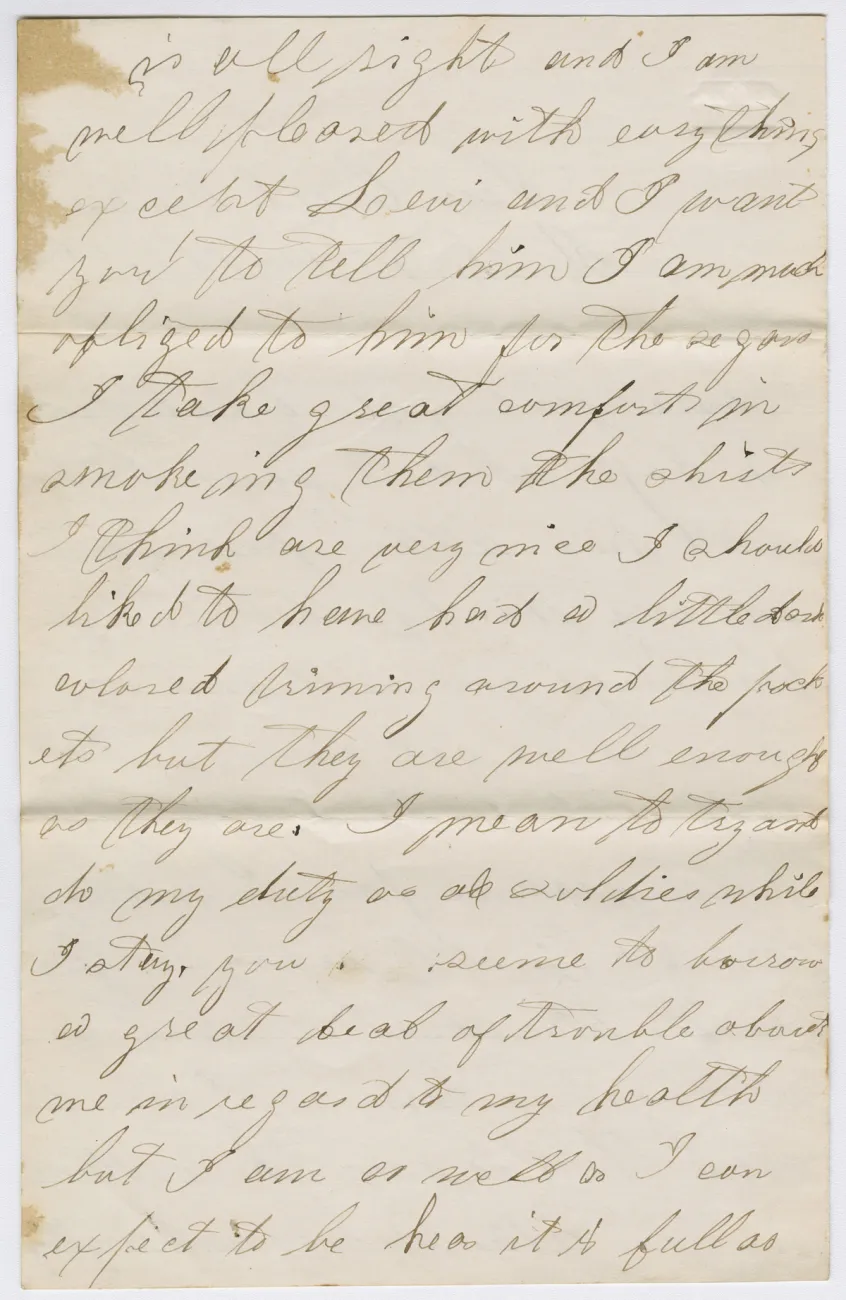 is all right and I am
well pleased with evrything
except Levi and I want
you to tell him I am much
obliged to him for the segars
I take great comfort in
smokeing them the shirts
I think are very nice I should
liked to have had a little dark
colored triming around the pock
ets but they are well enough
as they are. I mean to try and
do my duty as a soldier while
I stay. you seeme to borrow
a great deal of trouble about
me in regard to my health
but I am as well as I can
expect to be hear it is full as